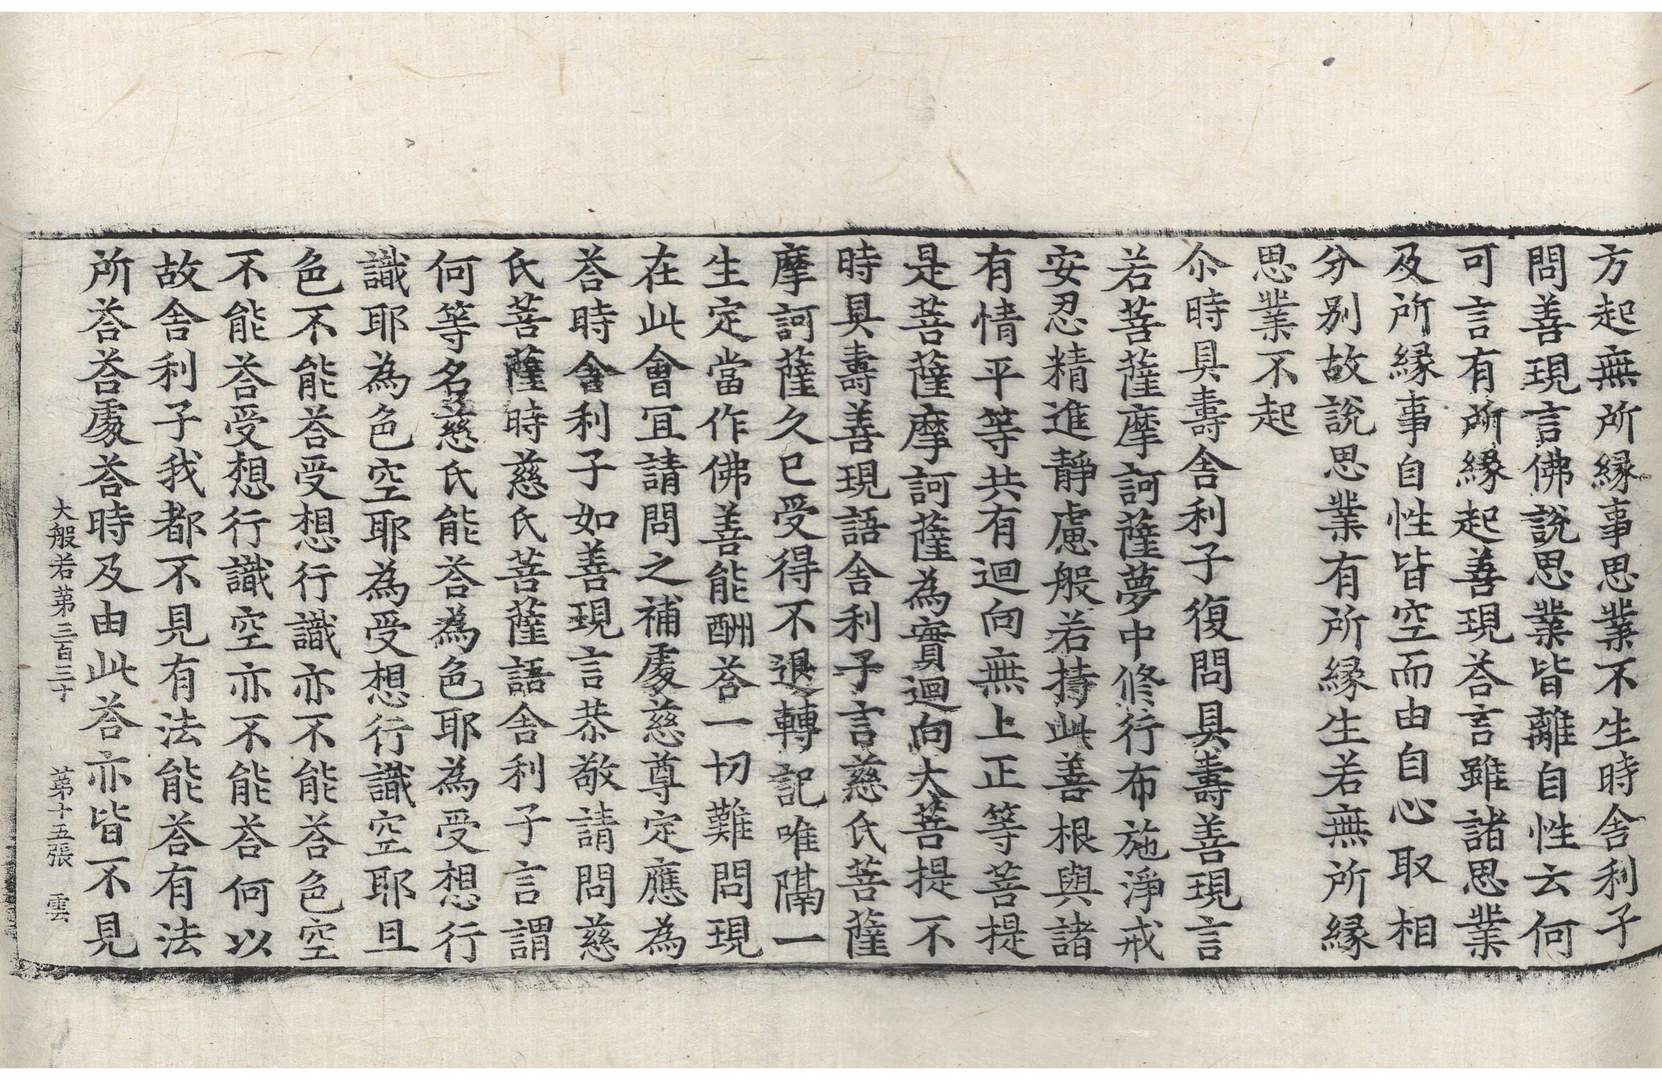 方起無所縁事思業不生時舍利子
問善現言佛說思業皆離自性云何
可言有所縁起善現荅言雖諸思業
及所縁事自性皆空而由自心取相
分别故說思業有所縁生若無所縁
思業不起
尒時具壽舍利子復問具壽善現言
若菩薩摩訶薩夢中修行布施淨戒
安忍精進靜慮般若持此善根與諸
有情平等共有迴向無上正等菩提
是菩薩摩訶薩為實迴向大菩提不
時具壽善現語舍利子言慈氏菩薩
摩訶薩久已受得不退轉記唯隔一
生定當作佛善能酬荅一切難問現
在此會宜請問之補處慈尊定應為
荅時舍利子如善現言恭敬請問慈
氏菩薩時慈氏菩薩語舍利子言謂
何等名慈氏能荅為色耶為受想行
識耶為色空耶為受想行識空耶且
色不能荅受想行識亦不能荅色空
不能荅受想行識空亦不能荅何以
故舍利子我都不見有法能荅有法
所荅荅處荅時及由此荅亦皆不見
大般若第三百三十 第十五張 雲